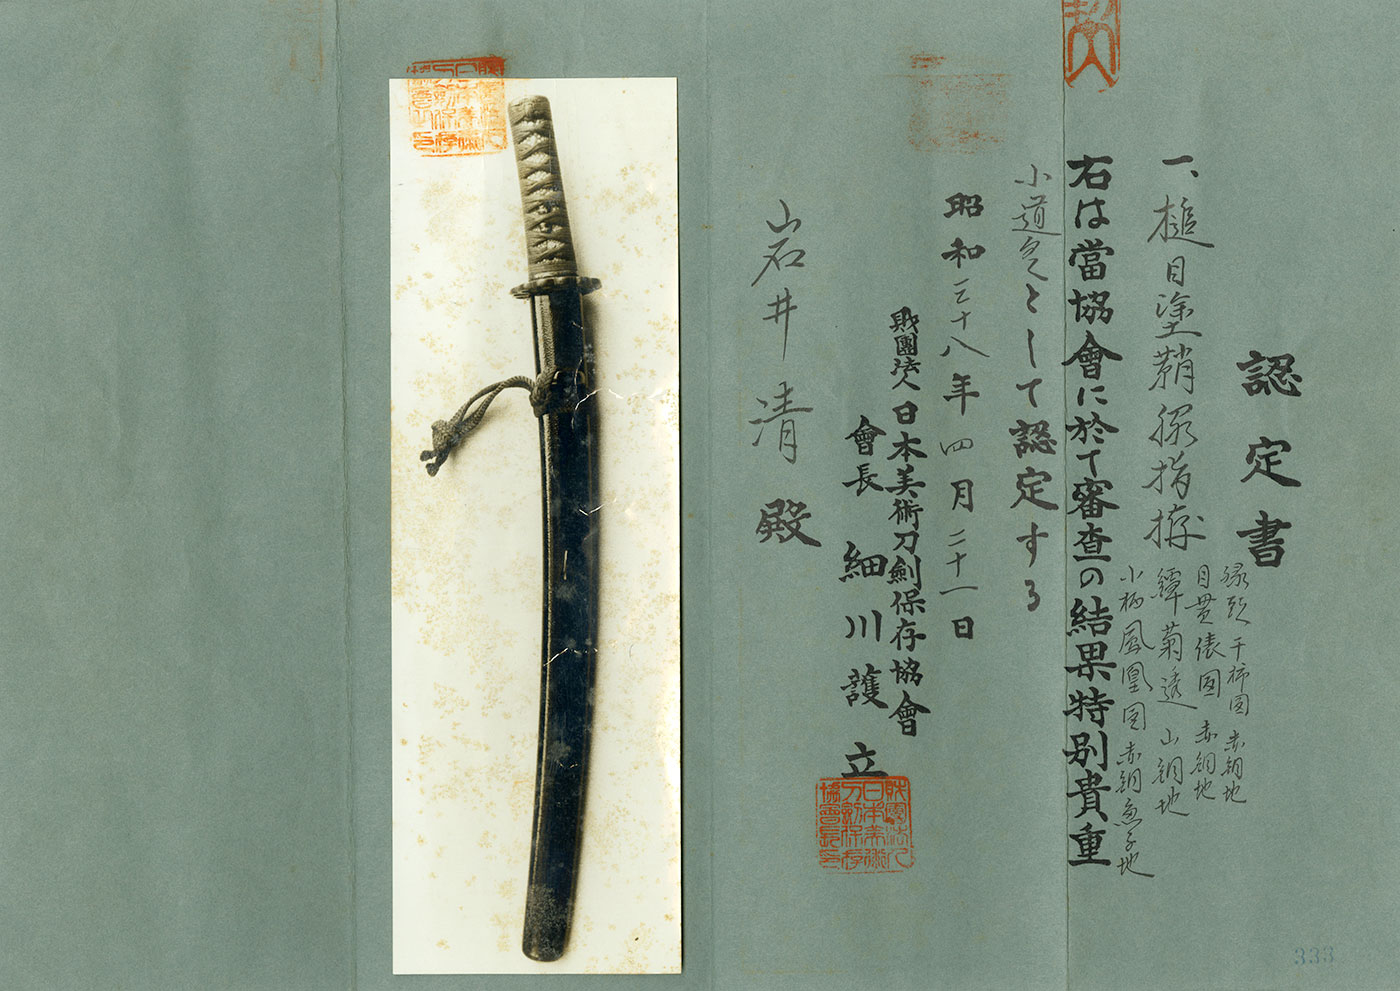 認定書
一、槌目塗鞘脇指拵
縁頭干柿図赤銅地
目貫俵図赤銅地
鐔菊透山銅地
小柄鳳凰図赤銅魚子地
右は當協會に於て審査の結果特別貴重
小道具として認定する
昭和三十八年四月二十一日
財團法人日本美術刀劍保存協會
會長細川護立
財團法人日本美術刀劍保存協會長印
岩井清殿
333